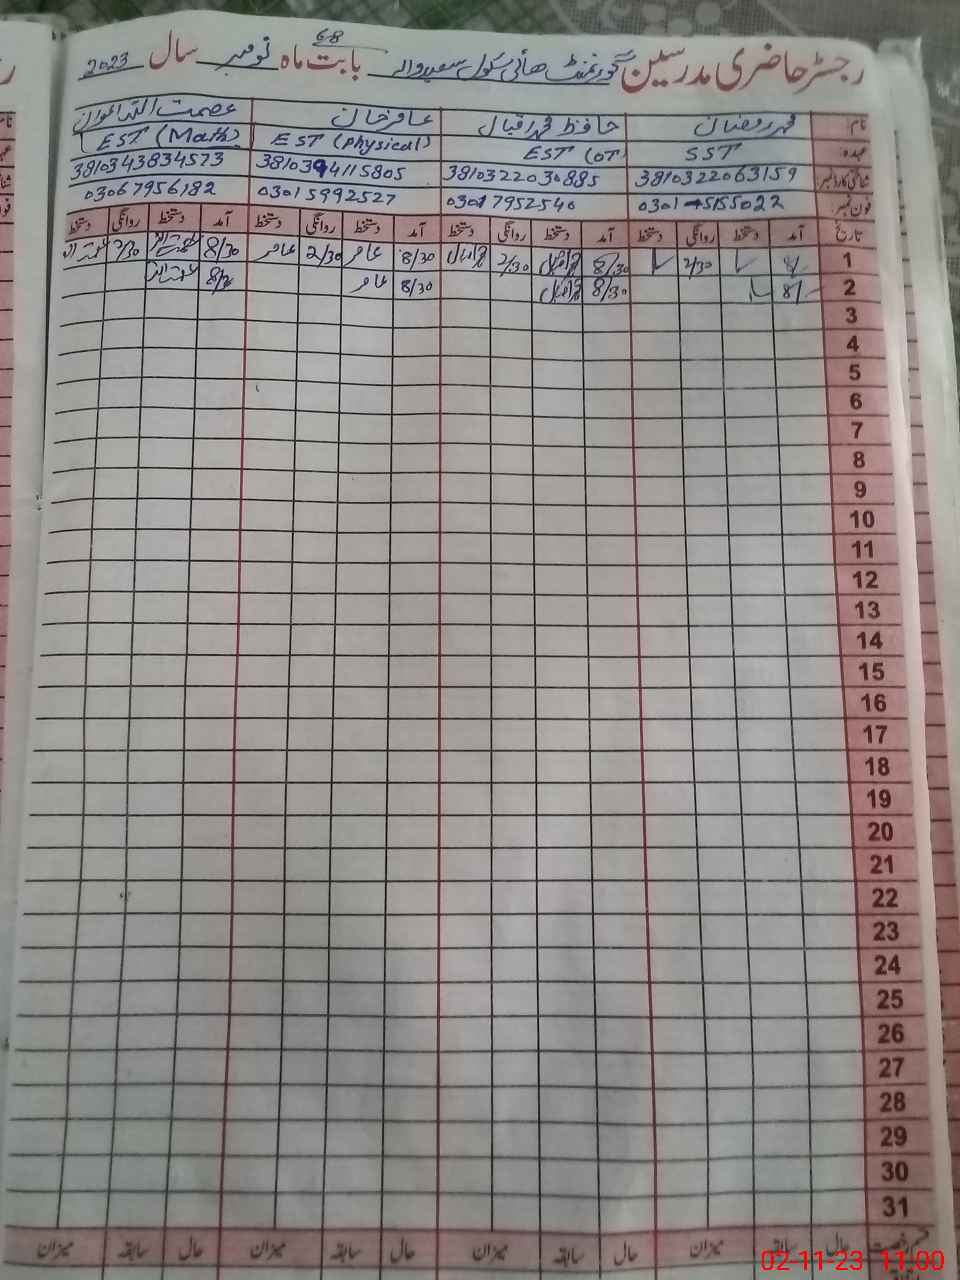 68
رجسٹر حاضری مدرسین گورنمنٹ ھائی سکول سعیدوالہ بابت ماہ نومبر سال 2023
نام محمد رمضان حافظ محمد اقبال عامر خان عصمت اللہ اعوان
عہدہ SST EST (OT) EST (Physical) EST (Math)
شناختی کارڈ نمبر 3810322063159 3810322030885 3810394115805 3810343834573
فون نمبر 0301 5155022 0301 7952540 03015992527 03067956182
تاریخ آمد دستخط روانگی دستخط آمد دستخط روانگی دستخط آمد دستخط روانگی دستخط آمد دستخط روانگی دستخط
1 8/ 2/30 8/30 محمد اقبال 2/30 محمد اقبال 8/30 عامر 2/30 عامر 8/30 عصمت اللہ 2/30 عصمت اللہ
2 8/ 8/30 محمد اقبال 8/30 عامر عصمت اللہ
3
4
5
6
7
8
9
10
11
12
13
14
15
16
17
18
19
20
21
22
23
24
25
26
27
28
29
30
31
قسم رخصت حال سابقہ میزان حال سابقہ میزان حال سابقہ میزان حال سابقہ میزان
02-11-23 11:00